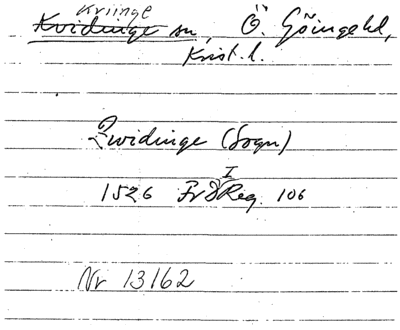 Kviinge
Kvidinge sn, Ö. Göingehd,
Krist. l.
Qwidinge (Sogn)
1526 Fr I Reg. 106
Nr 13162